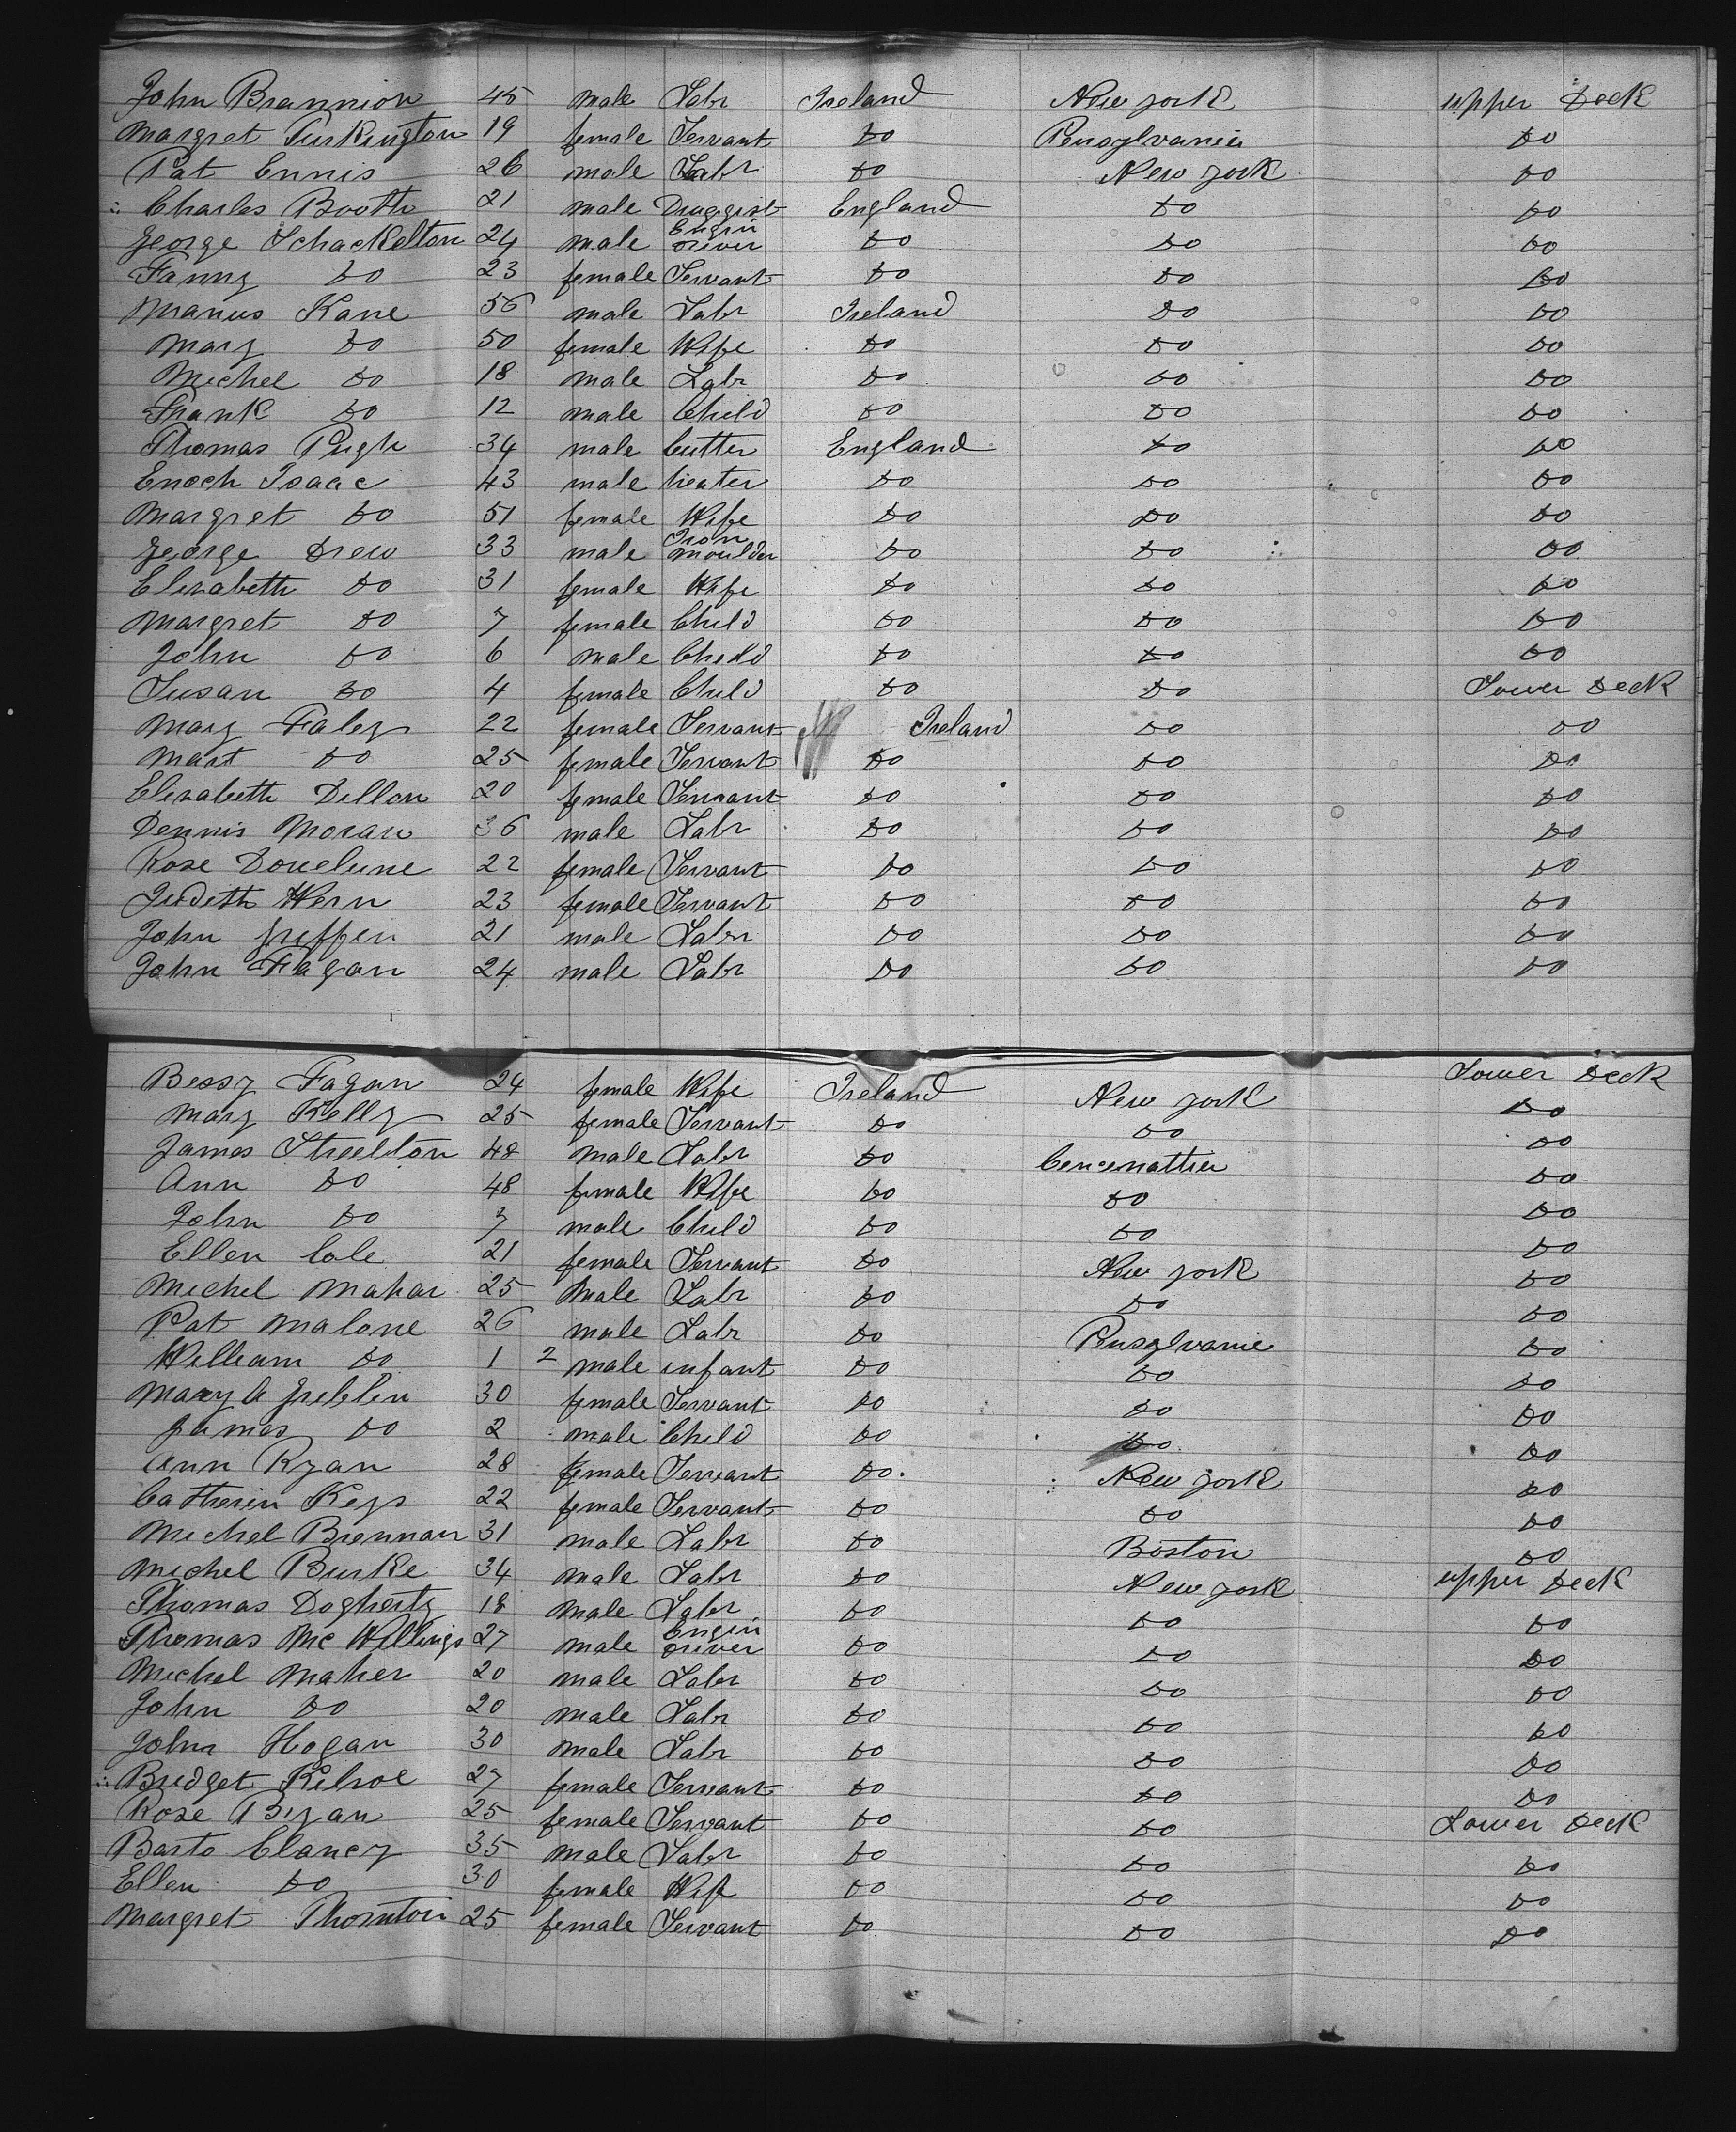 John Brannion 45 male Labr Ireland New york upper Deck
Margret Turkington 19 female Servant Do Pensylvania Do
Pat Ennis 26 male Labr Do New york Do
Charles Booth 21 male Druggist England Do Do
George Schackelton 24 male Engin Driver Do Do Do
Fanny Do 23 female Servant Do Do Do
Manus Kane 56 male Labr Ireland Do Do
Mary Do 50 female Wife Do Do Do
Michel Do 18 male Labr Do Do Do
Frank Do 12 male Child Do Do Do
Thomas Pugh 34 male Cutter England Do Do
Enoch Isaac 43 male heater Do Do Do
Margret Do 51 female Wife Do Do Do
George Drew 33 male Iron Moulder Do Do Do
Elisabeth Do 31 female Wife Do Do Do
Margret Do 7 female Child Do Do Do
John Do 6 male Child Do Do Do
Susan Do 4 female Child Do Do Lower Deck
Mary Faley 22 female Servant Ireland Do Do
Mart Do 25 female Servant Do Do Do
Elisabeth Dillon 20 female Servant Do Do Do
Dennis Moran 36 male Labr Do Do Do
Rose 22 female Servant Do Do Do
Judeth Wern 23 female Servant Do Do Do
John Griffen 21 male Labr Do Do Do
John Fagan 24 male Labr Do Do Do
Bessy Fagan 24 female Wife Ireland New york Lower Deck
Mary Kelly 25 female Servant Do Do Do
James Streelton 48 male Labr Do Cencenattia Do
Ann Do 48 female Wife Do Do Do
John Do 7 male Child Do Do Do
Ellen Cole 21 female Servant Do New york Do
Michel Mahar 25 Male Labr Do Do Do
Pat Malone 26 male Labr Do Pensylvanie Do
William Do 1 2 male infant Do Do Do
Mary A Griblin 30 female Servant Do Do Do
James Do 2 male Child Do Do Do
Ann Ryan 28 female Servant Do New york Do
Catherin Keys 22 female Servant Do Do Do
Michel Brennan 31 male Labr Do Boston Do
Michel Burke 34 male Labr Do New york upper Deck
Thomas Dogherty 18 male Labr Do Do Do
Thomas Mc Willings 27 male Engin Driver Do Do Do
Michel Maher 20 male Labr Do Do Do
John Do 20 male Labr Do Do Do
John Hogan 30 male Labr Do Do Do
Bridget Kilroe 27 female Servant Do Do Do
Rose Bryan 25 female Servant Do Do Lower Deck
Barto Clancy 35 male Labr Do Do Do
Ellen Do 30 female Wife Do Do Do
Margret Thornton 25 female Servant Do Do Do